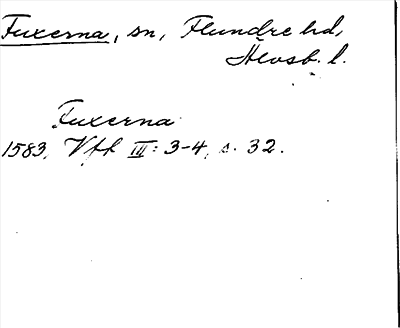 Fuxerna, sn, Flundre hd,
Älvsb. l.
Fuxerna
1583, Vff III: 3-4, s. 32.